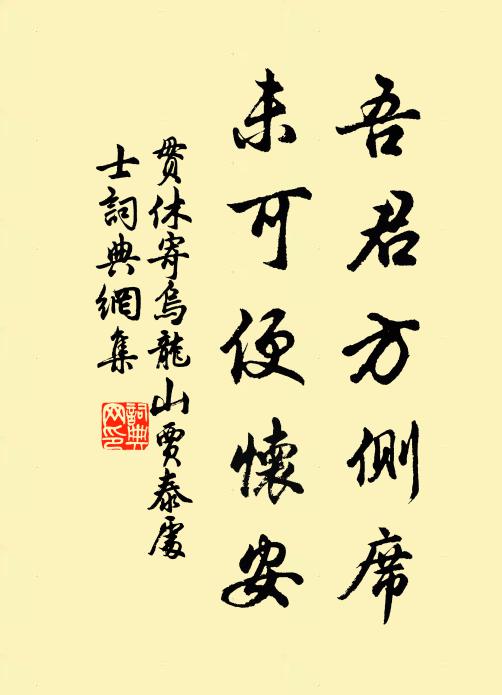 吾君方側席
未可便懷安
貫休寄烏龍山賈泰處
士詞典網集
詞典
网印